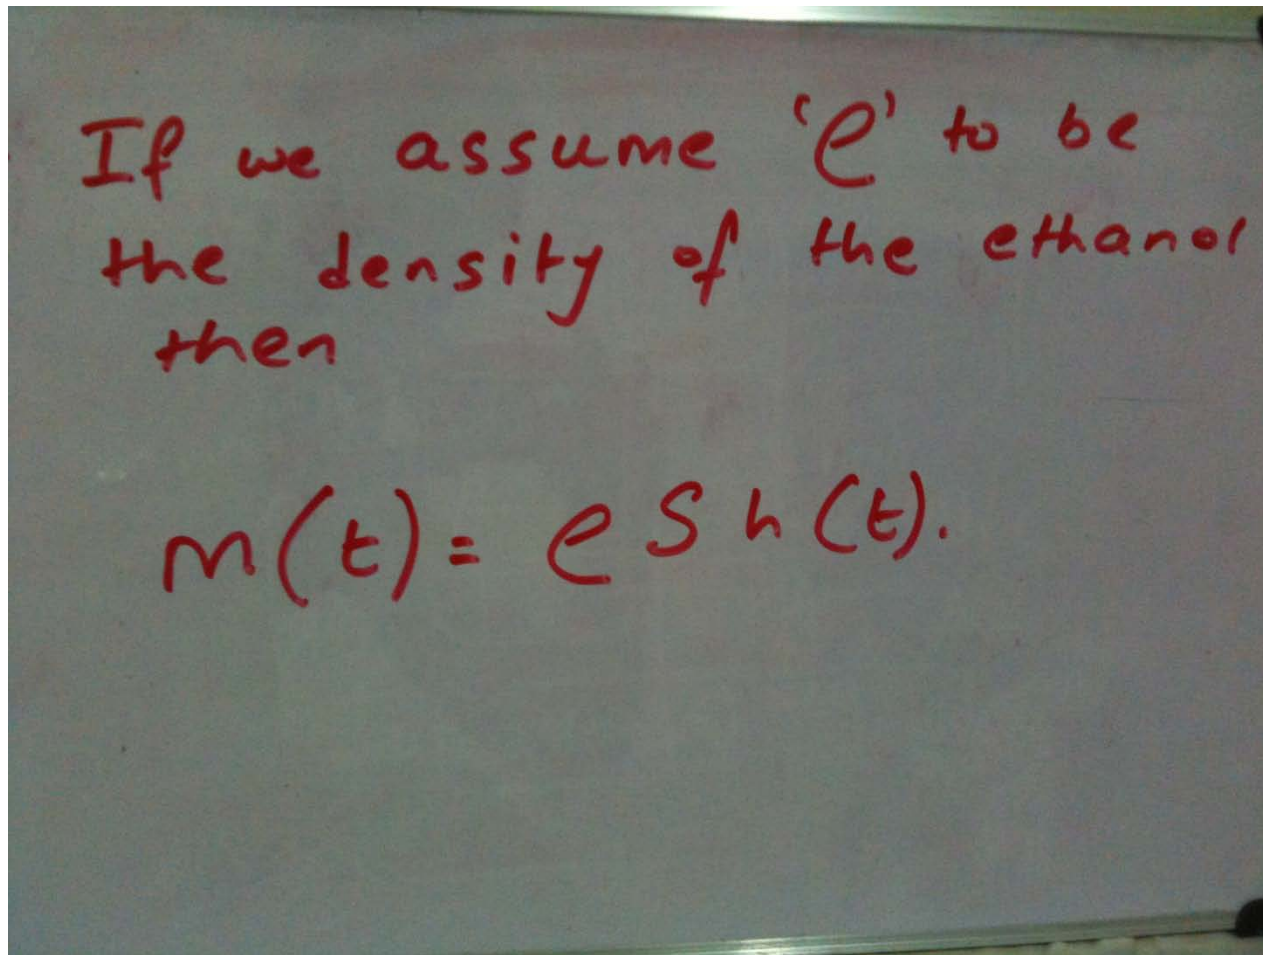 If we assume 'ρ' to be
the density of the ethanol
then
m(t) = ρ S h(t).